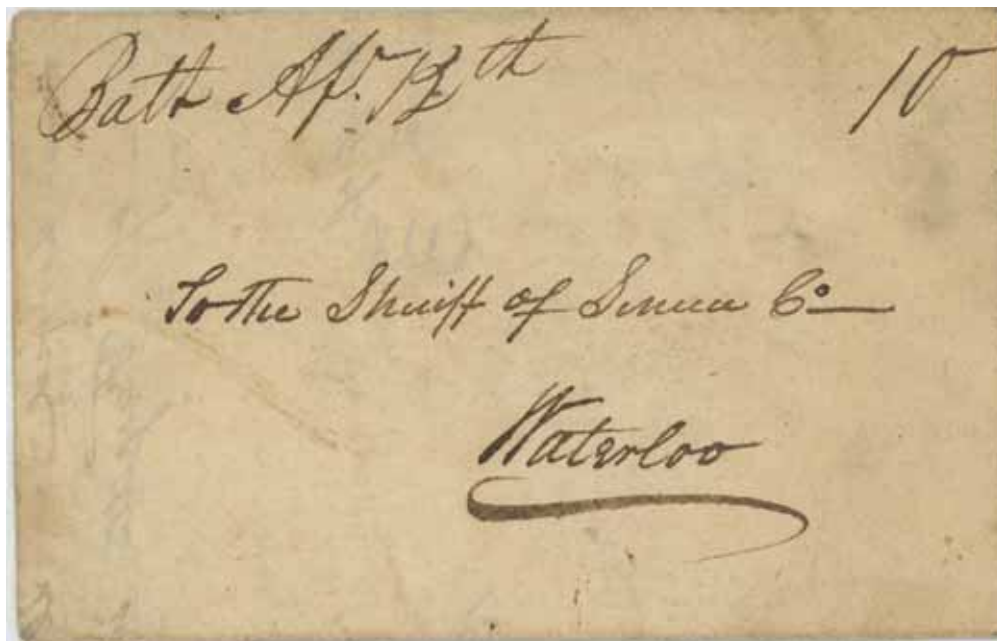 Bath Ap. 12th 10
To the Sheriff of Seneca Co
Waterloo